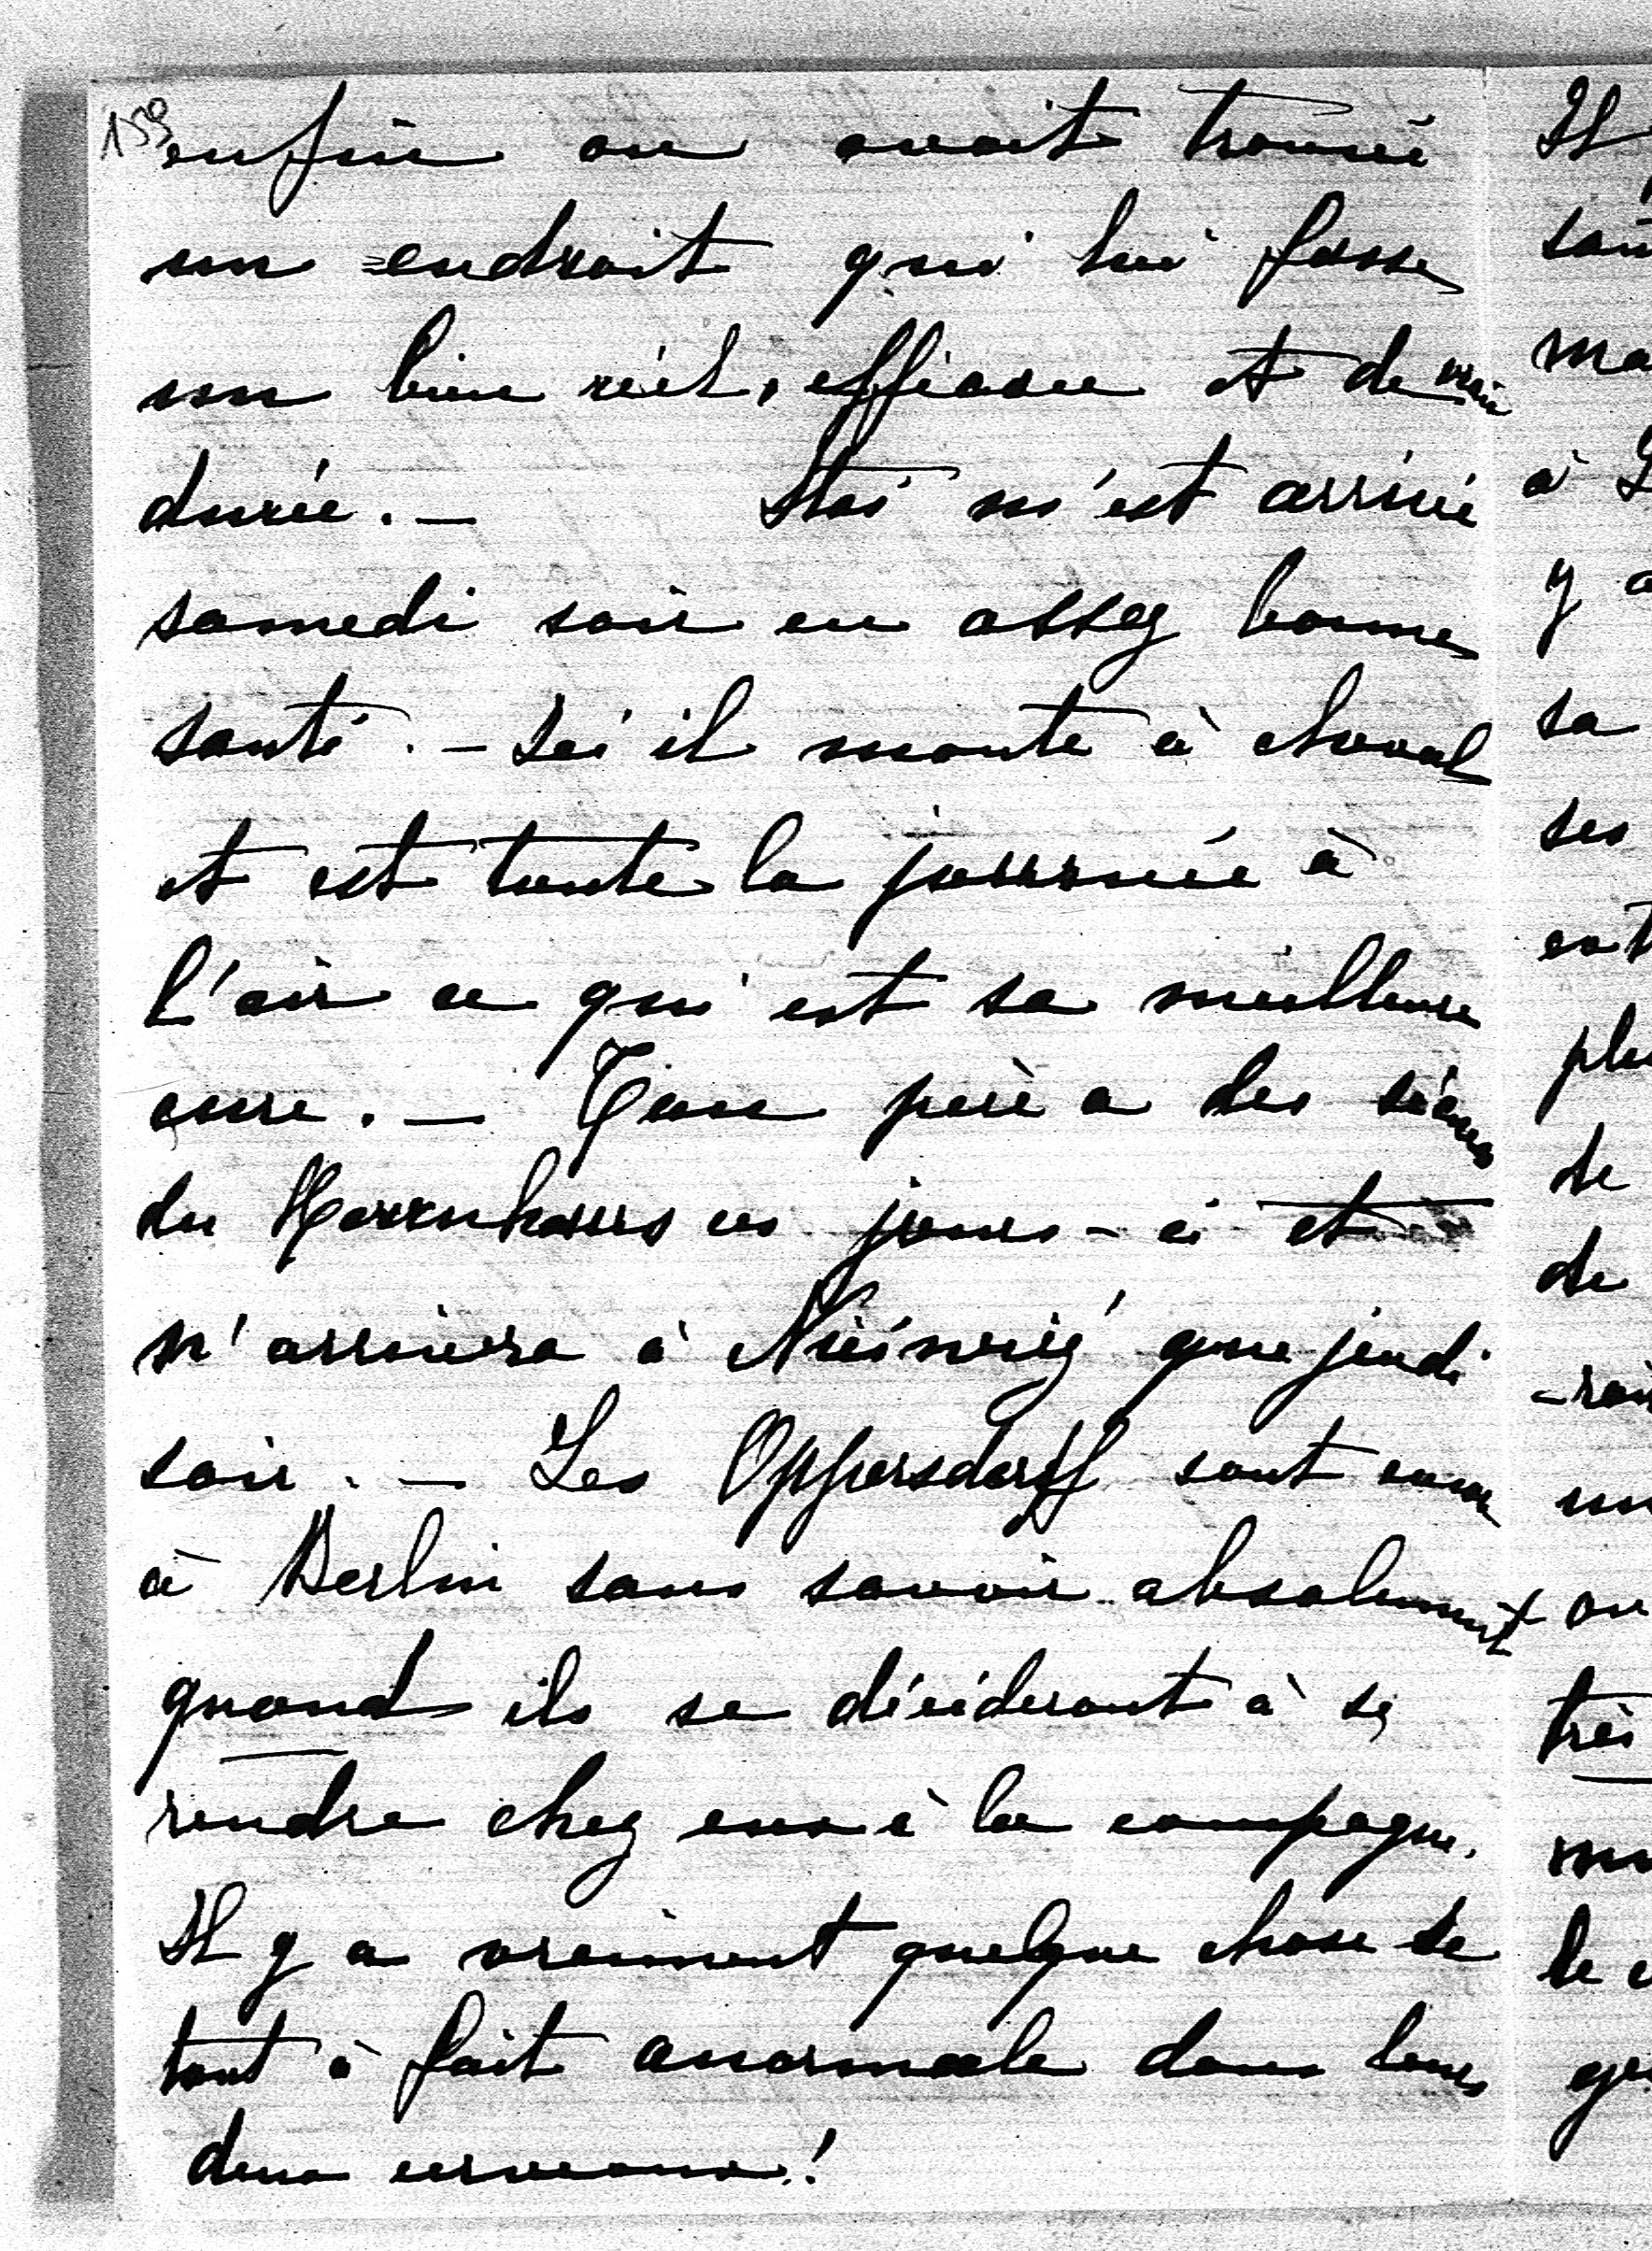 159
enfin on avait trouvé
un endroit qui lui fasse
un bien réel, efficace et de
durée. — Stas m'est arrivé
samedi soir en assez bonne
santé. — Ici il monte à cheval
et est toute la journée à
l'air ce qui est sa meilleure
cure. — Ton père a des séances
du Herrenhaus ces jours-ci et
n'arrivera à Nieśwież que jeudi
soir. — Les Oppersdorff sont encore
à Berlin sans savoir absolument
quand ils se décideront à se
rendre chez eux à la campagne.
Il y a vraiment quelque chose de
tout à fait anormale dans leurs
deux cerveaux!
Il
ma
à
y
sa
ses
de
de
très